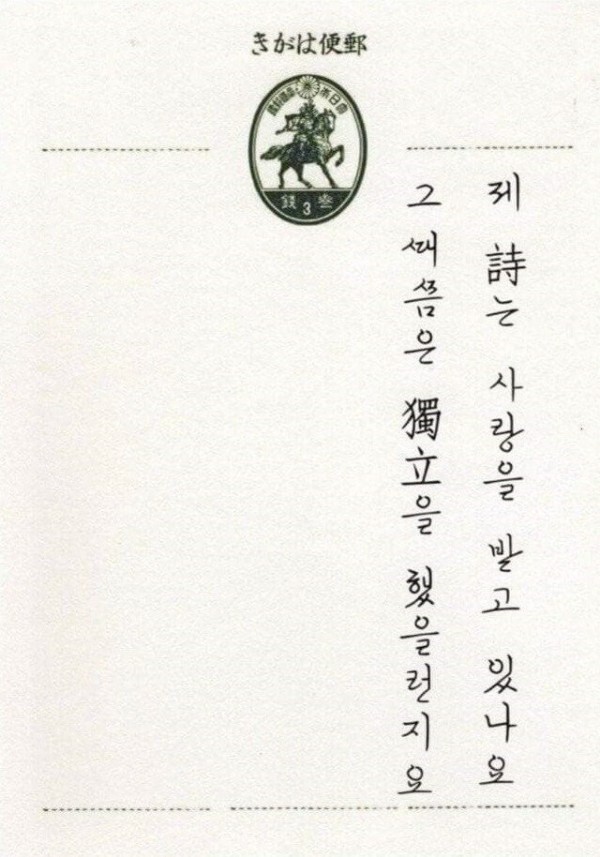 郵便はがき
大日本帝國郵便
3 錢
제 詩는 사랑을 받고 있나요
그 때쯤은 獨立을 했을런지요